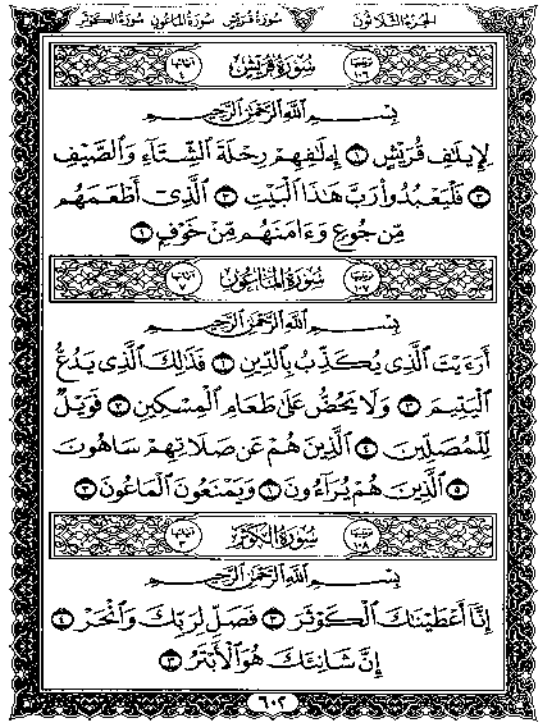 الجزء الثلاثون سورة قريش سورة الماعون سورة الكوثر
ترتيبها ١٠٦ سُورَةُ قُرَيْشٍ آياتها ٤
بِسْمِ ٱللَّهِ ٱلرَّحْمَٰنِ ٱلرَّحِيمِ
لِإِيلَٰفِ قُرَيْشٍ ١ إِۦلَٰفِهِمْ رِحْلَةَ ٱلشِّتَآءِ وَٱلصَّيْفِ
٢ فَلْيَعْبُدُوا۟ رَبَّ هَٰذَا ٱلْبَيْتِ ٣ ٱلَّذِىٓ أَطْعَمَهُم
مِّن جُوعٍ وَءَامَنَهُم مِّنْ خَوْفٍۭ ٤
ترتيبها ١٠٧ سُورَةُ المَاعُونِ آياتها ٧
بِسْمِ ٱللَّهِ ٱلرَّحْمَٰنِ ٱلرَّحِيمِ
أَرَءَيْتَ ٱلَّذِى يُكَذِّبُ بِٱلدِّينِ ١ فَذَٰلِكَ ٱلَّذِى يَدُعُّ
ٱلْيَتِيمَ ٢ وَلَا يَحُضُّ عَلَىٰ طَعَامِ ٱلْمِسْكِينِ ٣ فَوَيْلٌ
لِّلْمُصَلِّينَ ٤ ٱلَّذِينَ هُمْ عَن صَلَاتِهِمْ سَاهُونَ
٥ ٱلَّذِينَ هُمْ يُرَآءُونَ ٦ وَيَمْنَعُونَ ٱلْمَاعُونَ ٧
ترتيبها ١٠٨ سُورَةُ الكَوْثَرِ آياتها ٣
بِسْمِ ٱللَّهِ ٱلرَّحْمَٰنِ ٱلرَّحِيمِ
إِنَّآ أَعْطَيْنَٰكَ ٱلْكَوْثَرَ ١ فَصَلِّ لِرَبِّكَ وَٱنْحَرْ ٢
إِنَّ شَانِئَكَ هُوَ ٱلْأَبْتَرُ ٣
٦٠٢